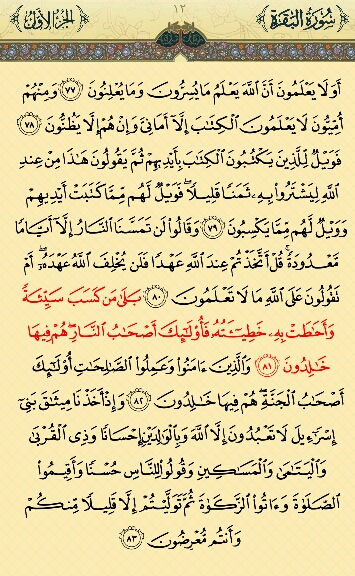 سُورَةُ البَقَرَة ١٢ الجُزءُ الأَوَّلُ
أَوَلَا يَعْلَمُونَ أَنَّ ٱللَّهَ يَعْلَمُ مَا يُسِرُّونَ وَمَا يُعْلِنُونَ ٧٧ وَمِنْهُمْ
أُمِّيُّونَ لَا يَعْلَمُونَ ٱلْكِتَٰبَ إِلَّآ أَمَانِيَّ وَإِنْ هُمْ إِلَّا يَظُنُّونَ ٧٨
فَوَيْلٌ لِّلَّذِينَ يَكْتُبُونَ ٱلْكِتَٰبَ بِأَيْدِيهِمْ ثُمَّ يَقُولُونَ هَٰذَا مِنْ عِندِ
ٱللَّهِ لِيَشْتَرُوا۟ بِهِۦ ثَمَنًا قَلِيلًا ۖ فَوَيْلٌ لَّهُم مِّمَّا كَتَبَتْ أَيْدِيهِمْ
وَوَيْلٌ لَّهُم مِّمَّا يَكْسِبُونَ ٧٩ وَقَالُوا۟ لَن تَمَسَّنَا ٱلنَّارُ إِلَّآ أَيَّامًا
مَّعْدُودَةً ۚ قُلْ أَتَّخَذْتُمْ عِندَ ٱللَّهِ عَهْدًا فَلَن يُخْلِفَ ٱللَّهُ عَهْدَهُۥٓ ۖ أَمْ
تَقُولُونَ عَلَى ٱللَّهِ مَا لَا تَعْلَمُونَ ٨٠ بَلَىٰ مَن كَسَبَ سَيِّئَةً
وَأَحَٰطَتْ بِهِۦ خَطِيٓـَٔتُهُۥ فَأُو۟لَٰٓئِكَ أَصْحَٰبُ ٱلنَّارِ ۖ هُمْ فِيهَا
خَٰلِدُونَ ٨١ وَٱلَّذِينَ ءَامَنُوا۟ وَعَمِلُوا۟ ٱلصَّٰلِحَٰتِ أُو۟لَٰٓئِكَ
أَصْحَٰبُ ٱلْجَنَّةِ ۖ هُمْ فِيهَا خَٰلِدُونَ ٨٢ وَإِذْ أَخَذْنَا مِيثَٰقَ بَنِىٓ
إِسْرَٰٓءِيلَ لَا تَعْبُدُونَ إِلَّا ٱللَّهَ وَبِٱلْوَٰلِدَيْنِ إِحْسَانًا وَذِى ٱلْقُرْبَىٰ
وَٱلْيَتَٰمَىٰ وَٱلْمَسَٰكِينِ وَقُولُوا۟ لِلنَّاسِ حُسْنًا وَأَقِيمُوا۟
ٱلصَّلَوٰةَ وَءَاتُوا۟ ٱلزَّكَوٰةَ ثُمَّ تَوَلَّيْتُمْ إِلَّا قَلِيلًا مِّنكُمْ
وَأَنتُم مُّعْرِضُونَ ٨٣